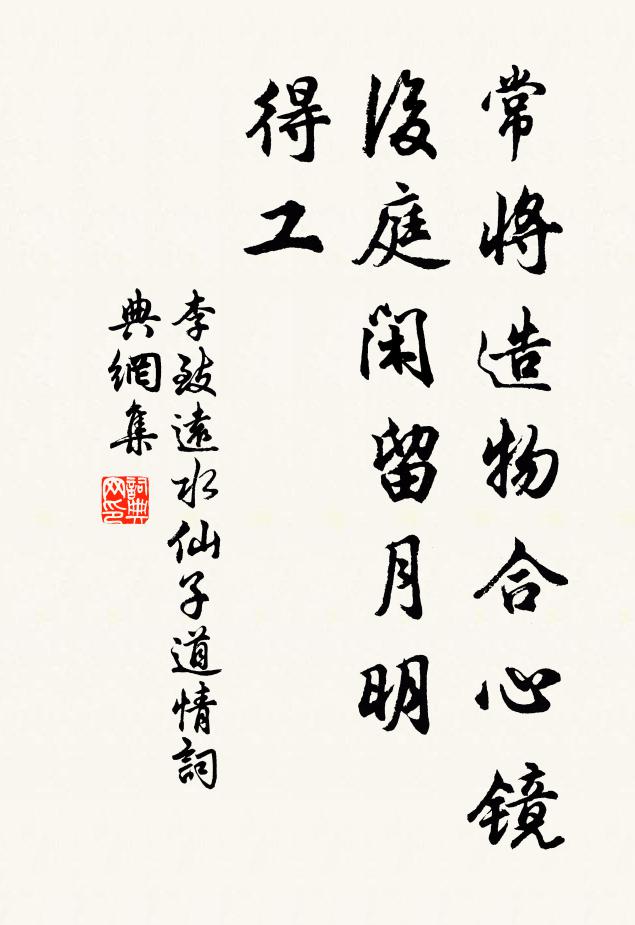 常將造物合心鏡
後庭閑留月明
得工
李致遠水仙子道情詞
典網集
詞典
网印